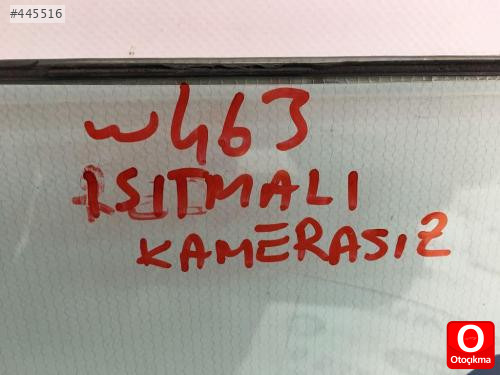 #445516
W463
ISITMALI
KAMERASIZ
Otoçıkma